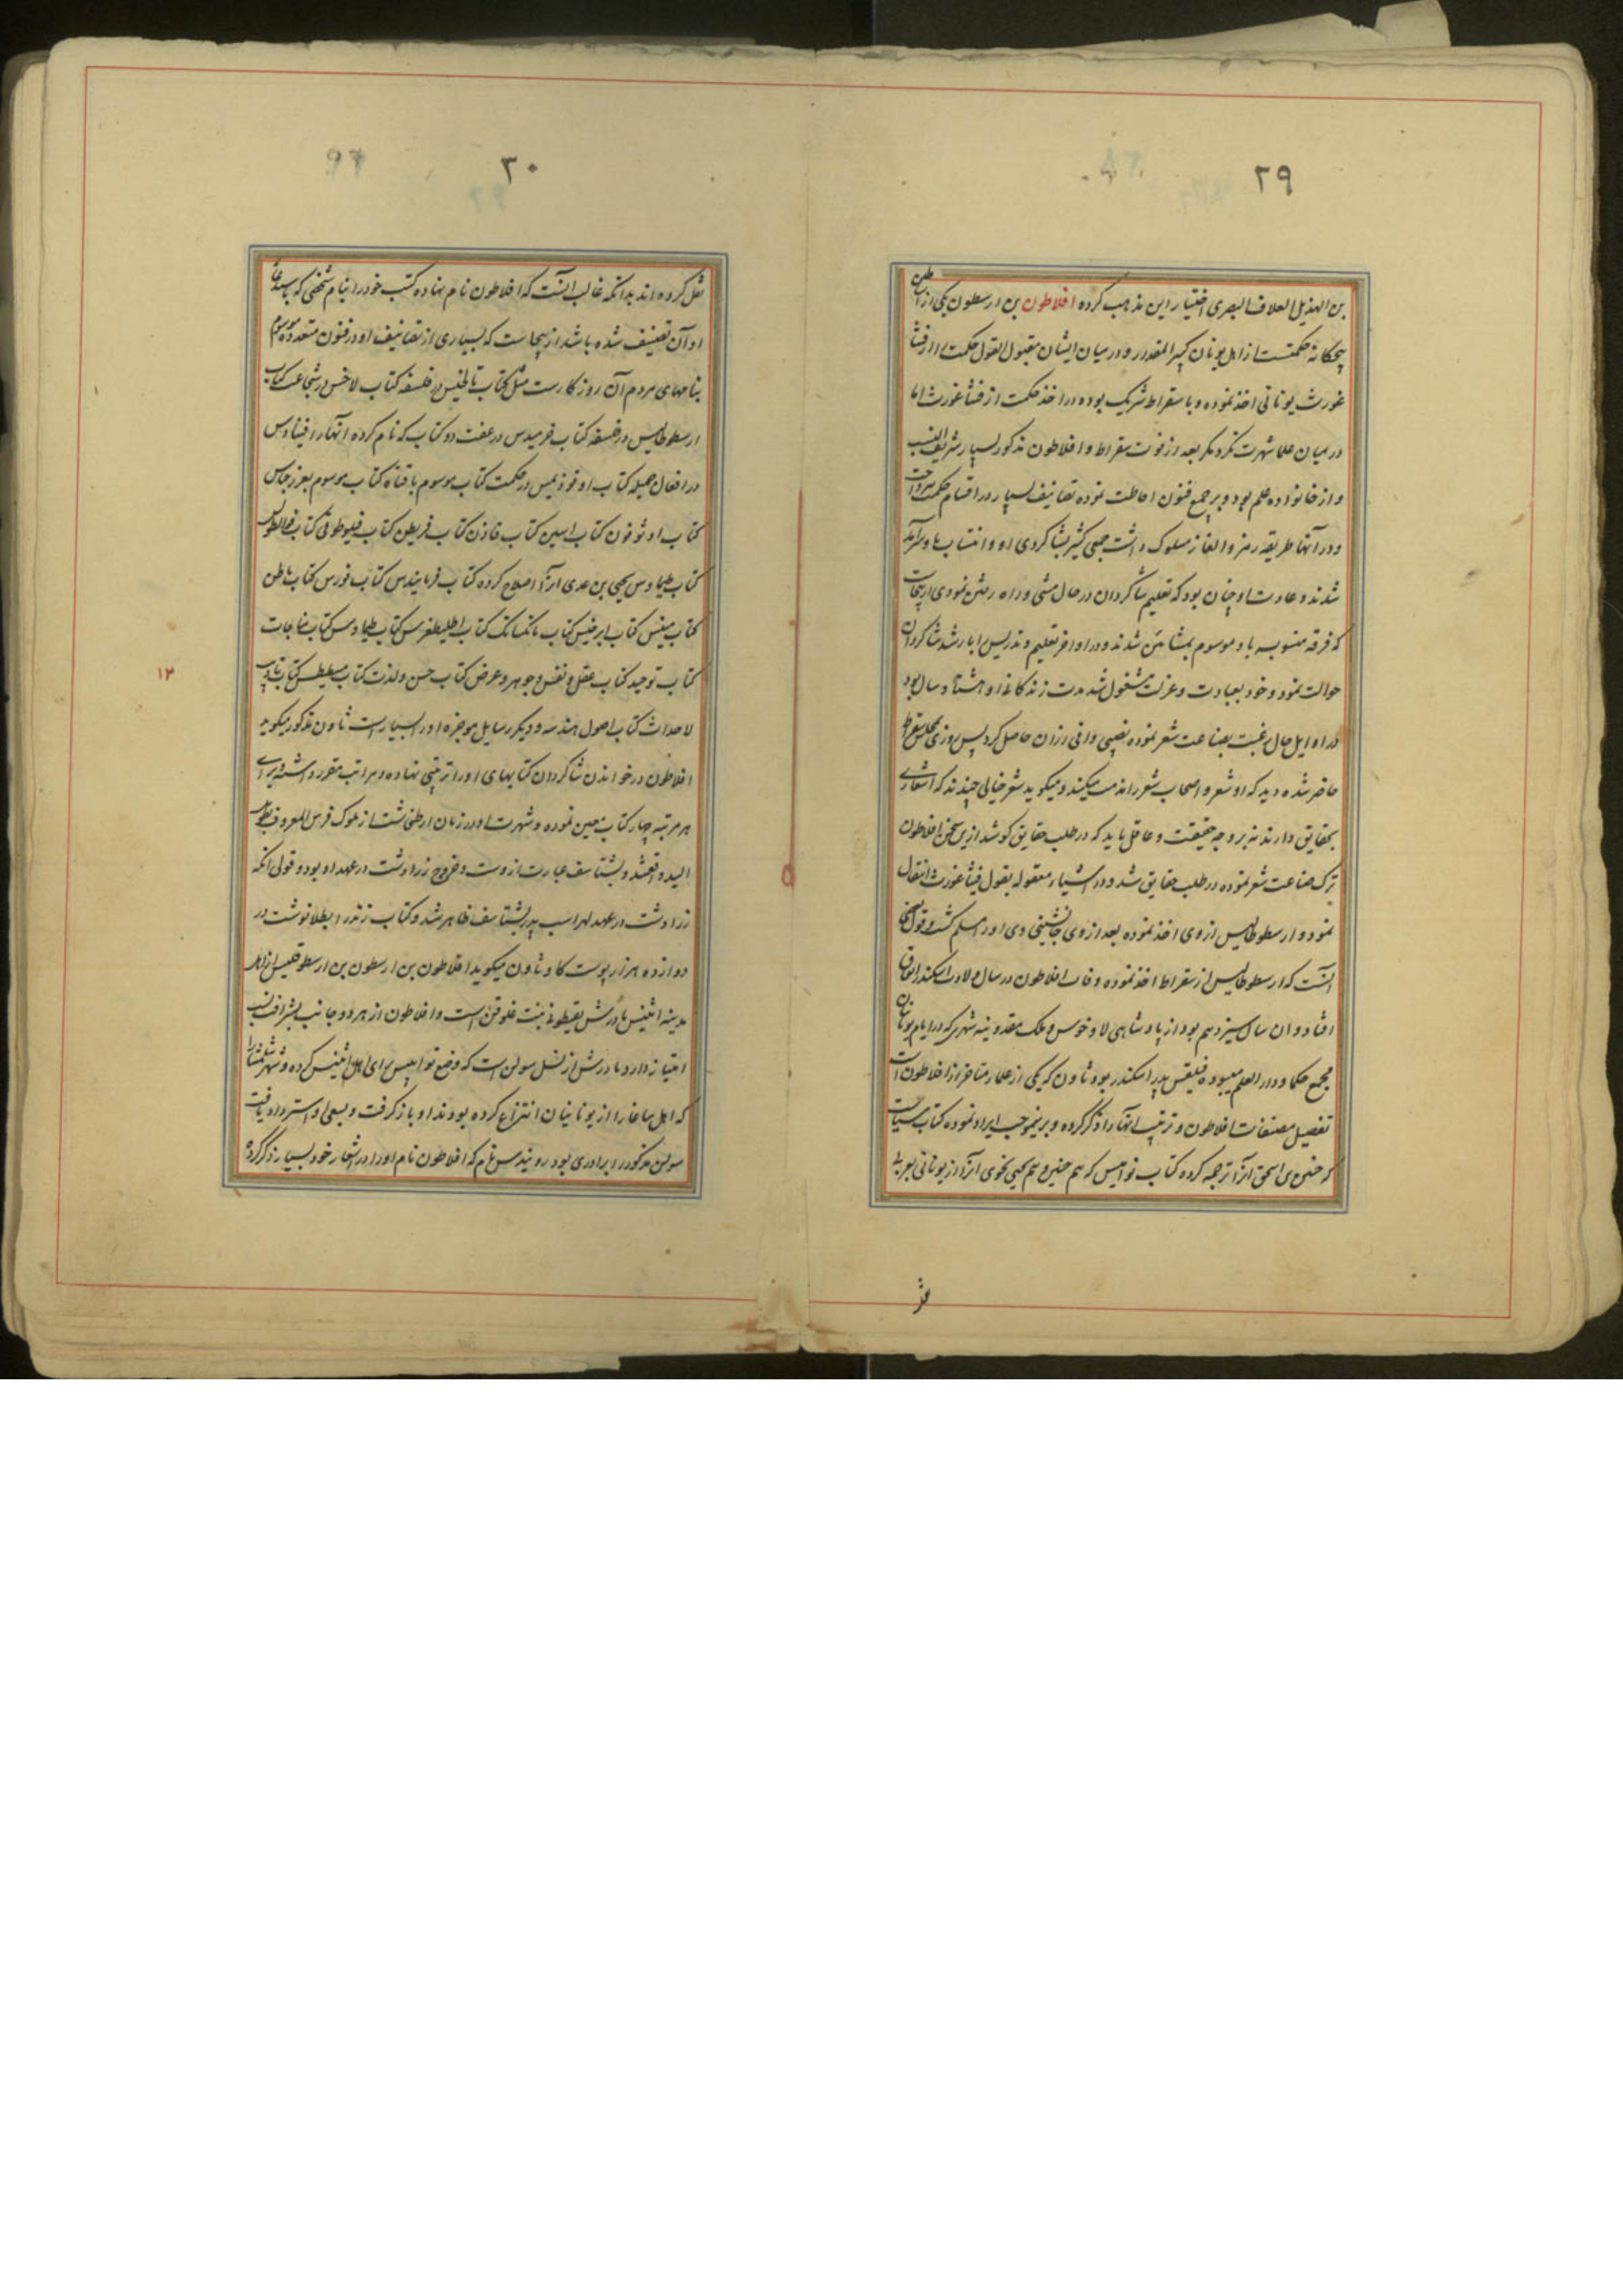 ۲۹
بن الهذیل العلاف البصری اختیار این مذهب کرده افلاطون بن ارسطون یکی از اساطین
پنجکانه حکمتست از اهل یونان کبیر المقدار و در میان ایشان مقبول القول حکمت را از فیثا
غورث یونانی اخذ نموده و با سقراط شریک بوده در اخذ حکمت از فیثاغورث اما
در میان علما شهرت نکرد مکر بعد از فوت سقراط و افلاطون مذکور بسیار شریف النسب
و از خانواده علم بود و بر جمیع فنون احاطت نموده تصانیف بسیار در اقسام حکمت پرداخت
و در آنها طریقه رمز و الغاز مسلوک داشت جمعی کثیر بشاکردی او و انتساب باو سرآمد
شدند و عادت او چنان بود که تعلیم شاکردان در حال مشی و راه رفتن نمودی ازینجاست
که فرقه منسوب باو موسوم بمشائین شدند و در اواخر تعلیم و تدریس را بارشد شاکردان
حوالت نمود و خود بعبادت و عزلت مشغول شد مدت زندکانی او هشتاد سال بود
در اوایل حال رغبت بصناعت شعر نموده نصیبی وافی از ان حاصل کرد پس روزی بمجلس سقراط
حاضر شده دید که او شعر و اصحاب شعر را مذمت میکند و میکوید شعر خیالی چندند که اشعاری
بحقایق دارند نه بر وجه حقیقت و عاقل باید که در طلب حقایق کوشد ازین سخن افلاطون
ترک صناعت شعر نموده در طلب حقایق شد و در اشیاء معقوله بقول فیثاغورث انتقال
نمود و ارسطوطالیس از وی اخذ نموده بعد از وی جانشینی وی او را مسلم کشت و قول
آنست که ارسطوطالیس از سقراط اخذ نموده وفات افلاطون در سال ولادت اسکندر اتفاق
افتاد و ان سال سیزدهم بود از پادشاهی لاوخوس و ملک مقدونیه شهری که در ایام یونانیان
مجمع حکما و دار العلم میبوده فیلقس پدر اسکندر بود و ثاون که یکی از علمار متاخر از افلاطون است
تفصیل مصنفات افلاطون و ترتیب انها را ذکر کرده و برینموجب ایراد نموده کتاب سیاست
که حنین بن اسحق آنرا ترجمه کرده کتاب نوامیس که هم حنین و هم یحیی نحوی آنرا از یونانی بعربی
۳۰
نقل کرده اند بدانکه غالب انست که افلاطون نام نهاده کتب خود را بنام شخصی که باستدعای
او آن تصنیف شده باشد از ینجاست که بسیاری از تصانیف او در فنون متعدده موسوم
بنامهای مردم آن روزکارست مثل کتاب تالطیس در فلسفه کتاب لاخس در شجاعت کتاب
ارسطوطالیس در فلسفه کتاب خرمیدس در عفت دو کتاب که نام کرده انها را القیبادس
در افعال جمیله کتاب اوثوذیمس در حکمت کتاب موسوم باقتاه کتاب موسوم بغرجیاس
کتاب اوثوفون کتاب اسین کتاب فاذن کتاب قریطن کتاب فیلوطوفی کتاب
کتاب طیماوس یحیی بن عدی انرا اصلاح کرده کتاب فرمانیدس کتاب فدرس کتاب ماطن
کتاب مینس کتاب ابرخیس کتاب مانکسانس کتاب اطلیطفرس کتاب طیماوس کتاب مناجات
کتاب توحید کتاب عقل و نفس و جوهر و عرض کتاب حسن و لذت کتاب سطیطس کتاب تادیب
لاحداث کتاب اصول هندسه و دیکر رسایل موجزه او را بسیار است ثاون مذکور میکوید
افلاطون در خواندن شاکردان کتابهای او را ترتیبی نهاده و مراتب مقرر داشته و برای
هر مرتبه چهار کتاب معین نموده و شهرت او در زمان ارطخشاشت از ملوک فرس المعروف بطویل
الید واقعشد و بشتاسف عبارت ازوست و خروج زرادشت در عهد او بود و قولی انکه
زرادشت در عهد لهراسب پدر بشتاسف ظاهر شد و کتاب زند را بطلا نوشت در
دوازده هزار پوست کاو ثاون میکوید افلاطون بن ارسطون بن ارسطوقلیس از اهل
مدینه اثینس مادرش بقیطونه بنت غلوقن است و افلاطون از هر دو جانب بشرافت نسب
امتیاز دارد مادرش از نسل سولن است که وضع نوامیس برای اهل اثینس کرده و شهر شلمنا را
که اهل ماغارا از یونانیان انتزاع کرده بودند او باز کرفت و بسعی او استرداد یافت
سولن مذکور را برادری بود رونیدس نام که افلاطون نام او را در اشعار خود بسیار ذکر کرده
۱۳